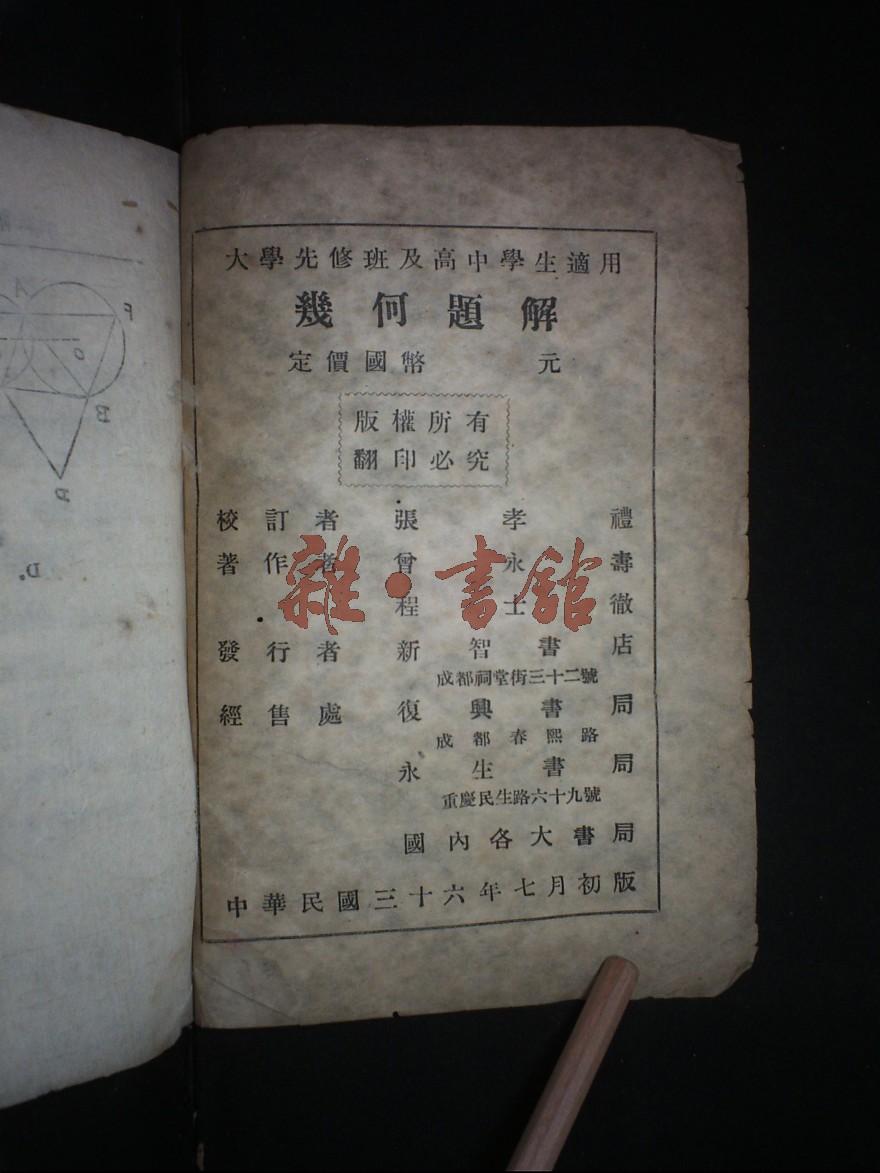 大學先修班及高中學生適用
幾何題解
定價國幣 元
版權所有
翻印必究
校訂者 張孝禮
著作者 曾永壽
程士徹
雜·書舘
發行者 新智書店
成都祠堂街三十二號
經售處 復興書局
成都春熙路
永生書局
重慶民生路六十九號
國內各大書局
中華民國三十六年七月初版
A
F
O
B
P
D.